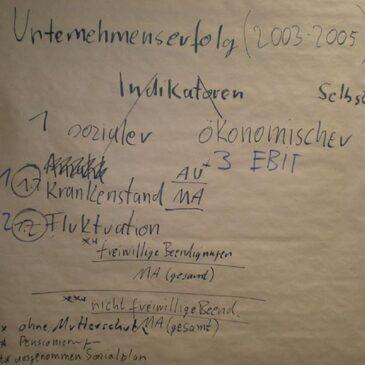 Unternehmenserfolg (2003-2005)
Indikatoren
Selbst
1 sozialer ökonomischer
+3 EBIT
1 1.1 Krankenstand AU
MA
2 1.2 Fluktuation
** freiwillige Beendigungen
MA (gesamt)
*** nicht freiwillige Beend.
MA (gesamt)
* ohne Mutterschutz
* Pensionier
** ausgenommen Sozialplan